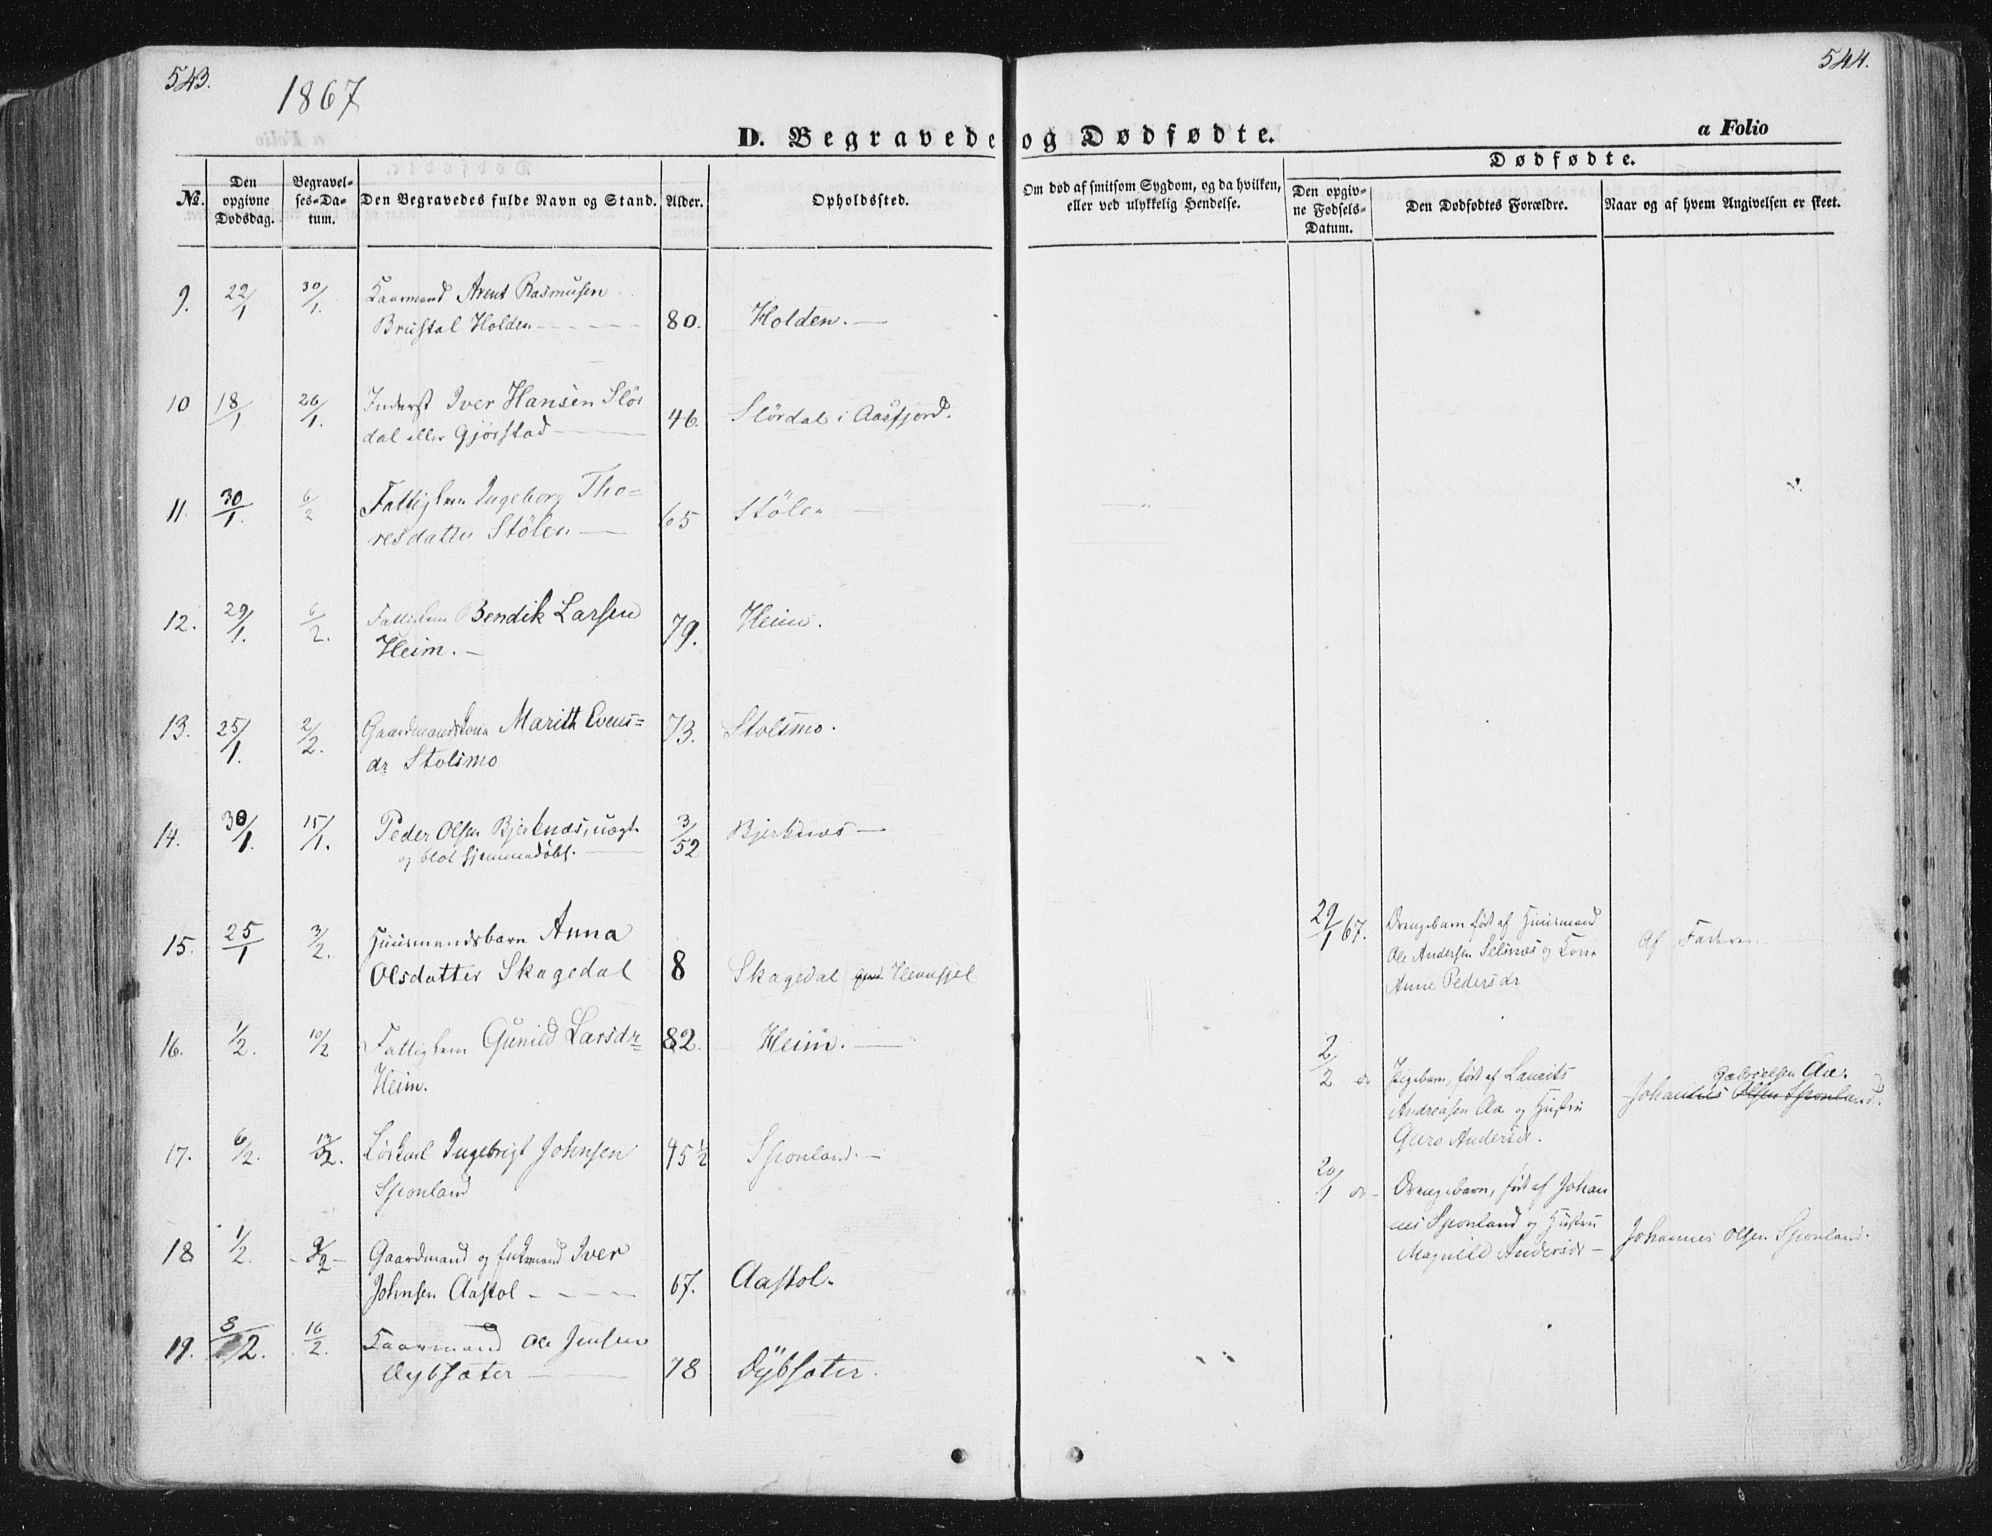 543.
1867
544.
D. Begravede og Dødfødte.
a Folio
Dødfødte.
No.
Den opgivne Dødsdag.
Begravelses-Datum.
Den Begravedes fulde Navn og Stand.
Alder.
Opholdssted.
Om død af smitsom Sygdom, og da hvilken, eller ved ulykkelig Hendelse.
Den opgivne Fødsels-Datum.
Den Dødfødtes Forældre.
Naar og af hvem Angivelsen er skeet.
9. 22/1 30/1. Kaarmand Arent Rasmusen
Brustal Holden 80. Holden.
10 18/1 26/1. Inderst Iver Hansen Slör
dal eller Gjörstad 46. Slördal i Aasfjord.
11. 30/1. 6/2 Fattiglem Ingeborg Tho=
resdatter Stölen 65 Stölen
12. 29/1. 6/2. Fattiglem Bendik Larsen
Heim. 79. Heim.
13. 25/1. 2/2. Gaardmandskone Maritt Evens=
dr Stolsmo 73. Stolsmo.
14. 30/1. 15/1. Peder Olsen Bjerknæs, uægte
og blot hjemmedøbt. 3/52 Bjerknæs
15. 25/1 3/2. Huusmandsbarn Anna
Olsdatter Skagedal 8 Skagedal Hevnsjel
16. 1/2. 10/2 Fattiglem Gunild Larsdr
Heim. 82. Heim.
17. 6/2. 17/2. Löskarl Ingebrigt Johnsen
Sponland 45 1/2 Sponland.
18 1/2. 9/2 Gaardmand og Iver
Johnsen Aastol 67. Aastol.
19. 8/2. 16/2. Kaarmand Ole Jensen
Dybsæter 78 Dÿbsæter.
29/1 67. Drengebarn född af Huusmand
Ole Andersen Selsnes og Kone
Anne Pedersdr
Af Faderen
2/2 do Pigebarn, född af Laurits
Andreasen Aa og Hustru
Guro Andersdr.
Gabrielsen Aa.
Johannes Olsen Sponland.
20/1 do Drengebarn, född af Johan
nes Sponland og Hustru
Magnild Andersdr
Johannes Olsen Sponland.